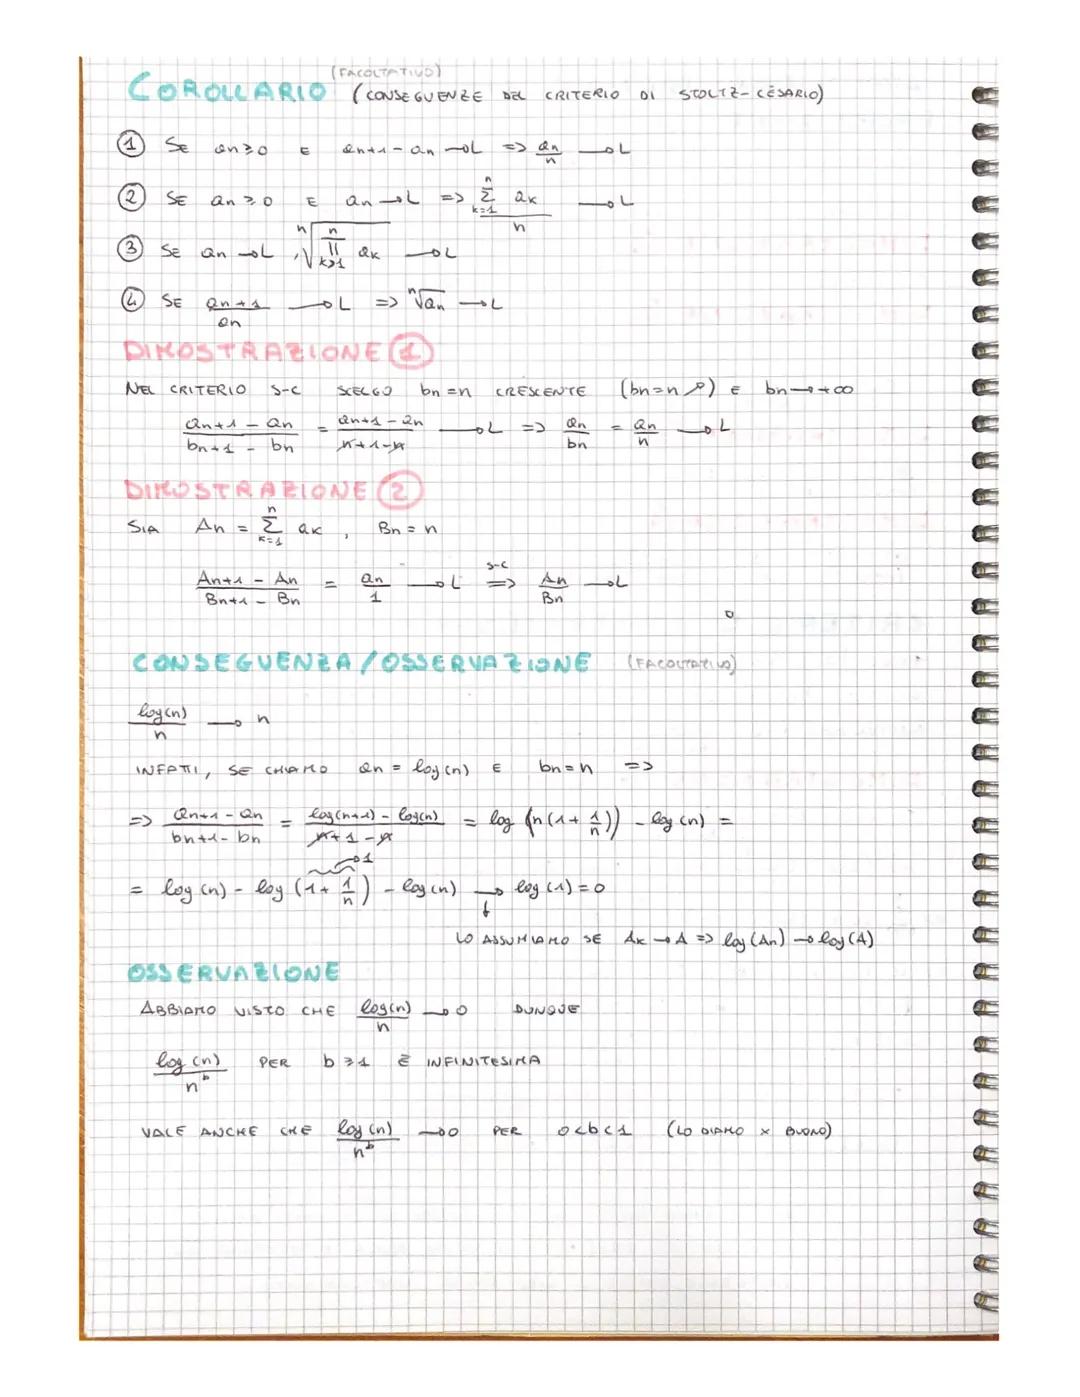 (FACOLTATIVO)
COROLLARIO (CONSEGUENZE DEL CRITERIO DI STOLTZ-CÉSARIO)
① SE an≥0 E an+1-an →L => an/n →L
② SE an≥0 E an→L => ∑_{k=1}^{n} ak / n →L
③ SE an→L, n√(∏_{k≥1}^{n} ak) →L
④ SE an+1/an →L => n√an →L
DIMOSTRAZIONE ①
NEL CRITERIO S-C SCELGO bn=n CRESCENTE (bn=n ↗) E bn→+∞
(an+1 - an)/(bn+1 - bn) = (an+1 - an)/(n+1-n) →L => an/bn = an/n →L
DIMOSTRAZIONE ②
SIA An = ∑_{k=1}^{n} ak, Bn = n
(An+1 - An)/(Bn+1 - Bn) = an/1 →L S-C => An/Bn →L
CONSEGUENZA/OSSERVAZIONE (FACOLTATIVO)
log(n)/n → n
INFATTI, SE CHIAMO an = log(n) E bn=n =>
=> (an+1 - an)/(bn+1 - bn) = (log(n+1) - log(n))/(n+1-n) = log(n(1+1/n)) - log(n) =
= log(n) - log(1+1/n) →1 - log(n) → log(1)=0
LO ASSUMIAMO SE AK→A => log(An)→log(A)
OSSERVAZIONE
ABBIAMO VISTO CHE log(n)/n →0 DUNQUE
log(n)/n^b PER b≥1 È INFINITESIMA
VALE ANCHE CHE log(n)/n^b →0 PER 0<b<1 (LO DIAMO X BUONO)